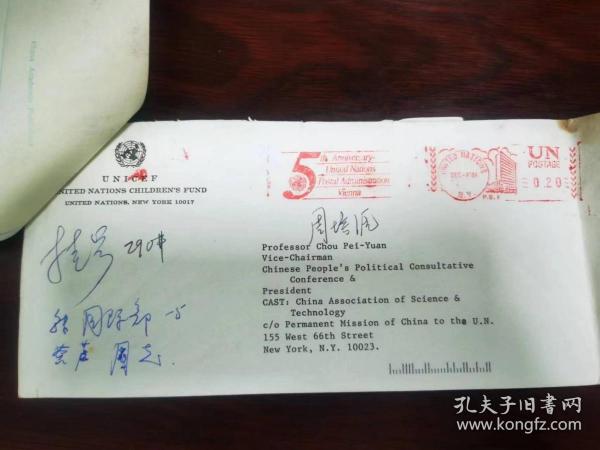 UNICEF
UNITED NATIONS CHILDREN'S FUND
UNITED NATIONS, NEW YORK 10017
5th Anniversary
United Nations
Postal Administration
Vienna
UNITED NATIONS
UN
POSTAGE
0.20
周培源
Professor Chou Pei-Yuan
Vice-Chairman
Chinese People's Political Consultative
Conference &
President
CAST: China Association of Science &
Technology
c/o Permanent Mission of China to the U.N.
155 West 66th Street
New York, N.Y. 10023.
挂号
转 国际部
同志
孔夫子旧书网
www.kongfz.com